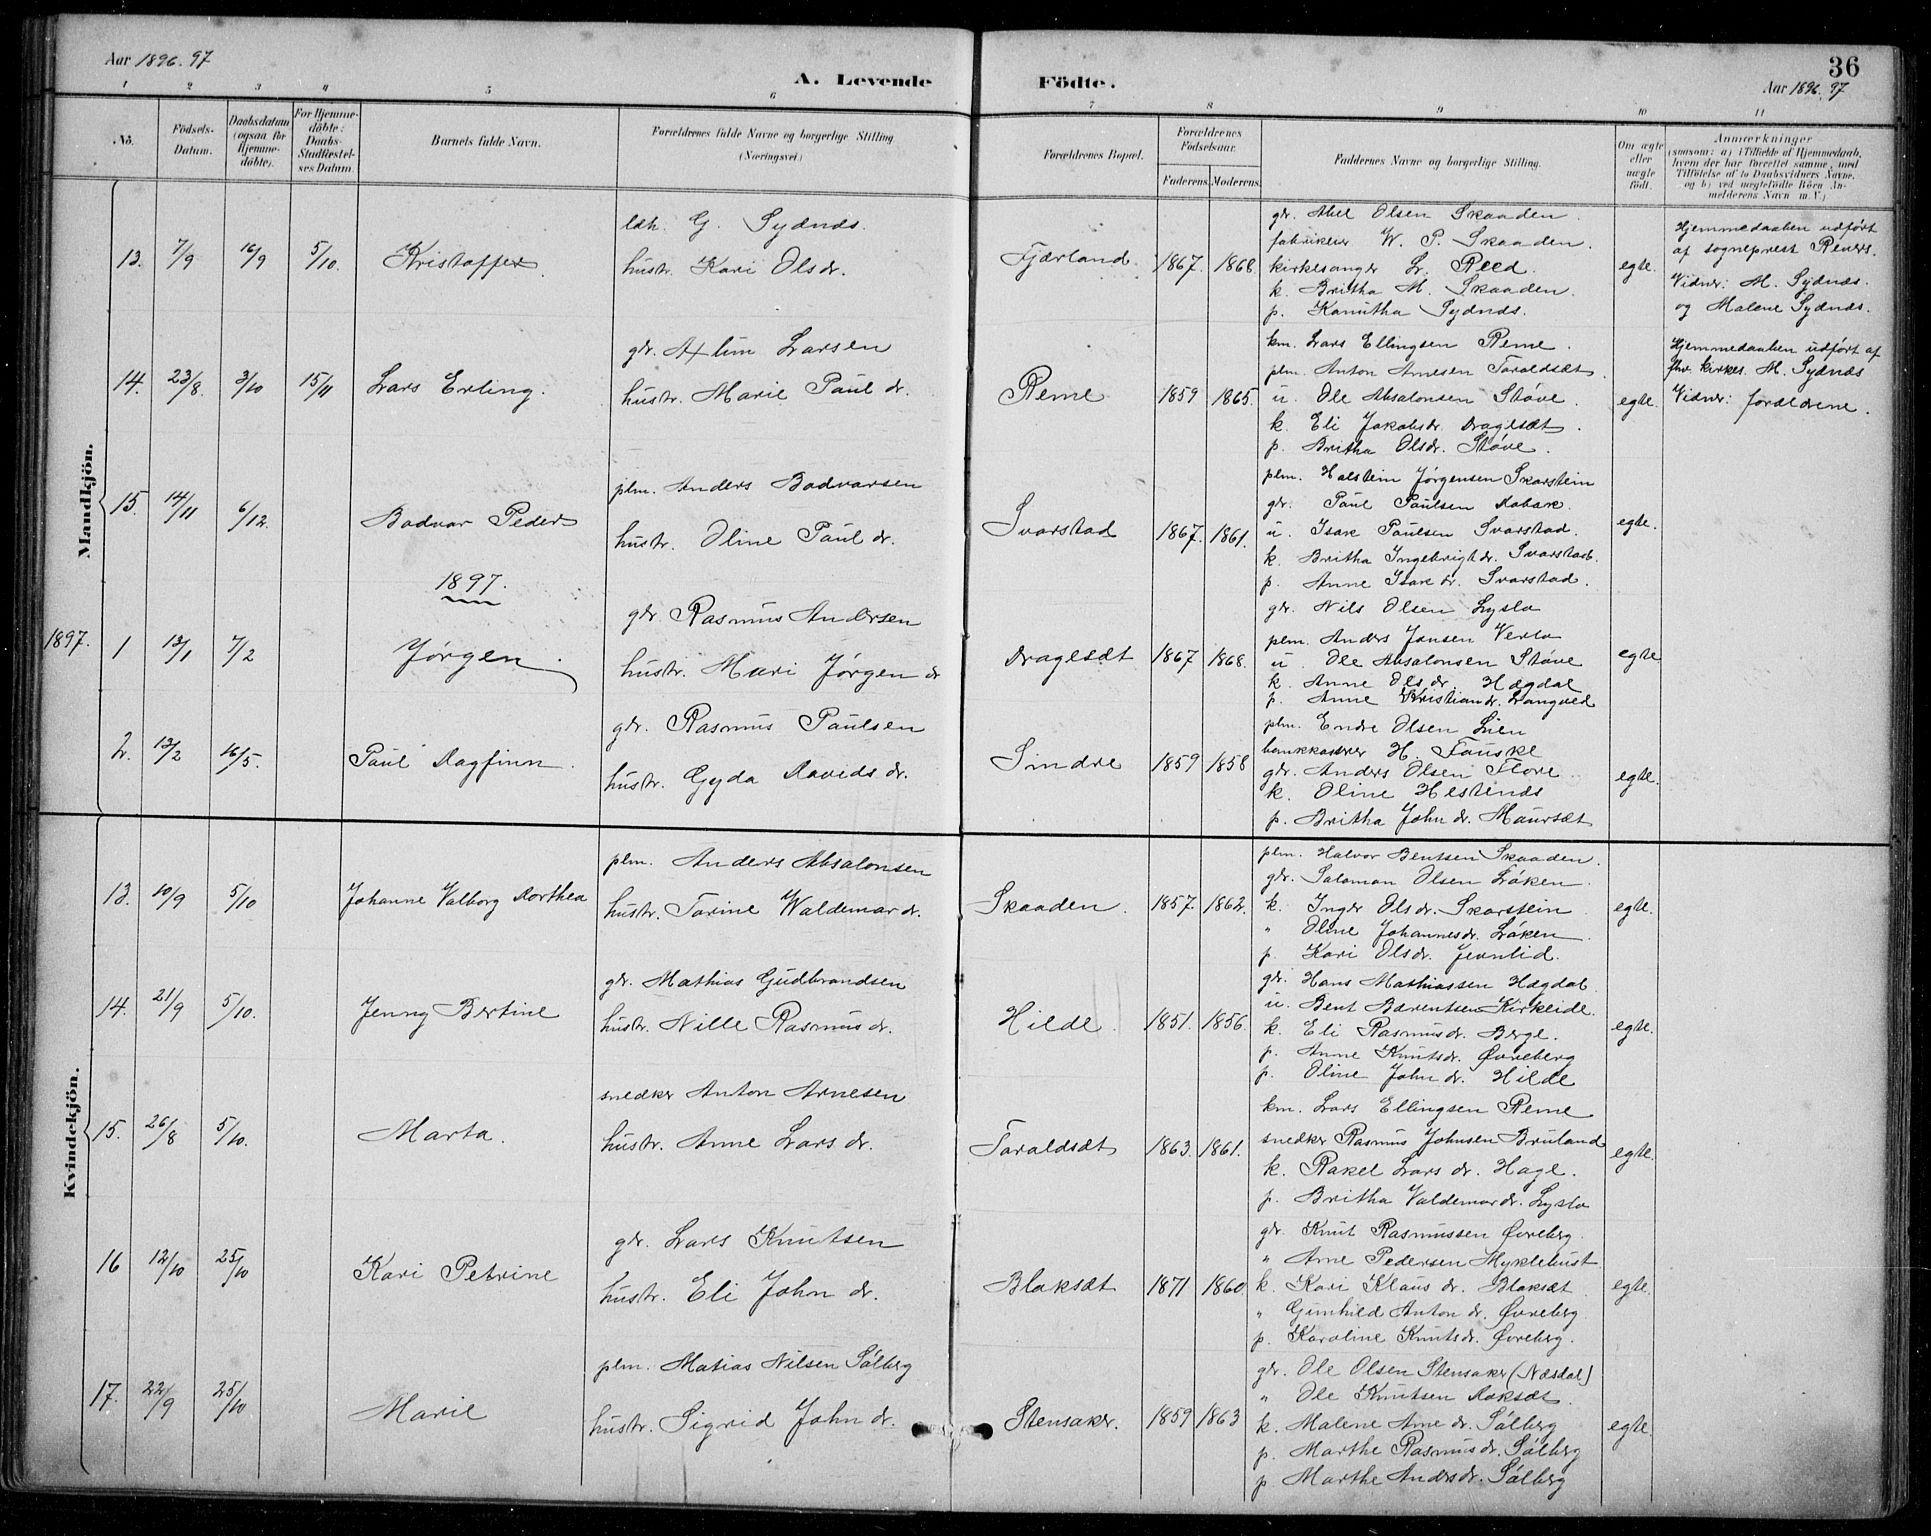 Aar 1896. 97
A. Levende Födte.
36
Aar 1896. 97
1 2 3 4 5 6 7 8 9 10 11
No.
Födsels-Datum.
Daabsdatum (ogsaa for Hjemme-döbte).
For Hjemme-döbte: Daabs-Stadfæstel-ses Datum.
Barnets fulde Navn.
Forældrenes fulde Navne og borgerlige Stilling (Næringsvei.)
Forældrenes Bopæl.
Forældrenes Födselsaar.
Faderens. Moderens.
Faddernes Navne og borgerlige Stilling.
Om ægte eller uægte födt.
Anmærkninger (saasom: a) i Tilfælde af Hjemmedaab, hvem der har forrettet samme, med Tilföielse af to Daabsvidners Navne, og b) ved uægtefödte Börn An-melderens Navn m. V.)
Mandkjön.
13. 7/9 16/9 5/10. Kristoffer.
ldh. G. Sydnæs.
hustr. Kari Olsdr.
Fjærland. 1867. 1868.
gdr. Abel Olsen Skaaden.
fabrikeier W. P. Skaaden.
kirkesanger L. Reed.
k. Britha M. Skaaden.
p. Kanutha Sydnæs.
egte.
Hjemmedaaben udført
af sogneprest Reners.
Vidner: M. Sydnæs.
og Malene Sydnæs.
14. 23/8. 3/10 15/11 Lars Erling.
gdr. Axlim Larsen
hustr. Marie Paul dr.
Reme 1859 1865.
km. Lars Ellingsen Reme.
plm. Anton Arnesen Taraldsæt.
u. Ole Absalonsen Støve.
k. Eli Jakobsdr. Dragesæt.
p. Britha Olsdr. Støve.
egte.
Hjemmedaaben udført af
fhv. kirkes. M. Sydnæs
Vidner: forældrene.
15. 14/11 6/12. Bodvar Peder
plm. Anders Bodvarsen
hustr. Oline Paul dr.
Svarstad 1867. 1861.
plm. Halstein Jørgensen Skarstein
gdr. Paul Paulsen Aabak.
u. Isak Paulsen Svarstad.
k. Britha Ingebrigt dr. Svarstad.
p. Anne Isak dr. Svarstad.
egte.
1897.
1897. 1 13/1 7/2 Jørgen.
gdr. Rasmus Andersen
hustr. Mari Jørgen dr
Dragesæt 1867 1868.
gdr. Nils Olsen Lyslo
plm. Anders Jansen Verlo
u. Ole Absalonsen Støve
k. Anne Ols dr. Hægdal
p. Anne Kristian dr. Langved
egte
2. 13/2 16/5. Paul Dagfinn.
gdr. Rasmus Paulsen
hustr. Gyda Davids dr.
Sindre 1859 1858
plm. Endre Olsen Lien
bankkasserer H. Fauske
gdr. Anders Olsen Flore
k. Oline Hestenæs
p. Britha John dr. Maursæt
egte.
Kvindekjön.
13. 10/9 5/10 Johanne Valborg Dorthea
plm. Anders Absalonsen
hustr. Tarine Waldemar dr.
Skaaden. 1857. 1862.
plm. Halvor Bentsen Skaaden.
gdr. Salomon Olsen Løken.
k. Inger Ols dr. Skarstein
" Oline Johannesdr. Løken.
p. Kari Olsdr. Jevnlid.
egte.
14. 21/9 5/10. Jenny Bertine
gdr. Mathias Gudbrandsen
hustr. Nille Rasmus dr.
Hilde. 1851. 1856.
gdr. Hans Mathiassen Hægdal.
u. Bent Bærentsen Kirkeide.
k. Eli Rasmus dr. Berge.
p. Anne Knutsdr. Øvreberg
p. Oline John dr. Hilde
egte.
15. 26/8 5/10. Marta.
snedker Anton Arnesen
hustr. Anne Lars dr.
Taraldsæt 1863. 1861.
km. Lars Ellingsen Reme
snedker Rasmus Johnsen Bruland
k. Rakel Lars dr. Hage.
p. Britha Valdemar dr. Lyslo
egte.
16 12/10 25/10 Kari Petrine
gdr. Lars Knutsen
hustr. Eli John dr.
Blaksæt 1871 1860.
gdr. Knut Rasmussen Øvreberg.
" Arne Pedersen Myklebust
k. Kari Klaus dr. Blaksæt
" Gunhild Anton dr. Øvreberg
p. Karoline Knutsdr. Øvreberg.
egte.
17. 22/9 25/10 Marie
plm. Matias Nilsen Sølberg
hustr. Sigrid John dr.
Stensaker. 1859 1863
gdr. Ole Olsen Stensaker (Næsdal)
" Ole Knutsen Aaksæt.
k. Malene Arne dr. Sølberg
p. Marthe Rasmus dr. Sølberg
p. Marthe Anders dr. Sølberg
egte.